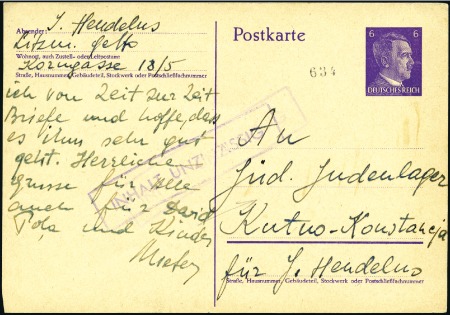 Absender: I. Hendelus
Litzm. Getto
Wohnort, auch Zustell- oder Leitpostamt
Korngasse 18/5
Straße, Hausnummer, Gebäudeteil, Stockwerk oder Postschließfachnummer
ich von Zeit zur Zeit
Briefe und hoffe, das
es ihm sehr gut
geht. Herzliche
grüsse für alle
auch für Dawid
Pola und Kinder
Postkarte
6 6
DEUTSCHES REICH
634
INHALT UNZULÄSSIG
An
Jüd. Judenlager
Kutno-Konstancja
für J. Hendelus
Straße, Hausnummer, Gebäudeteil, Stockwerk oder Postschließfachnummer